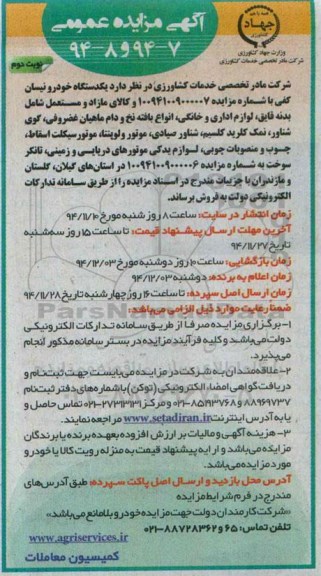 جهاد
وزارت جهاد کشاورزی
شرکت مادر تخصصی خدمات کشاورزی
آگهی مزایده عمومی
۹۴-۷ و ۹۴-۸
نوبت دوم
شرکت مادر تخصصی خدمات کشاورزی در نظر دارد یکدستگاه خودرو نیسان
کفی با شماره مزایده ۱۰۰۹۴۱۰۹۰۰۰۰۰۷ و کالای مازاد و مستعمل شامل
بدنه قایق، لوازم اداری و خانگی، انواع بافته نخ و دام ماهیان غضروفی، گوی
شناور، نمک کلرید کلسیم، شناور صیادی، موتور و لوپنتا، موتورسیکلت اسقاط،
چوب و منصوبات چوبی، لوازم یدکی موتورهای دریایی و زمینی، تانکر
سوخت به شماره مزایده ۱۰۰۹۴۱۰۹۰۰۰۰۰۶ در استان‌های گیلان، گلستان
و مازندران با جزییات مندرج در اسناد مزایده را از طریق سامانه تدارکات
الکترونیکی دولت به فروش برساند.
زمان انتشار در سایت: ساعت ۸ روز شنبه مورخ ۹۴/۱۱/۱۰
آخرین مهلت ارسال پیشنهاد قیمت: تا ساعت ۱۵ روز سه‌شنبه
تاریخ ۹۴/۱۱/۲۷
زمان بازگشایی: ساعت ۱۰ روز دوشنبه مورخ ۹۴/۱۲/۰۳
زمان اعلام به برنده: دوشنبه ۹۴/۱۲/۰۳
زمان ارسال اصل سپرده: تا ساعت ۱۶ روز چهارشنبه تاریخ ۹۴/۱۱/۲۸
ضمنا رعایت موارد ذیل الزامی می‌باشد:
۱- برگزاری مزایده صرفا از طریق سامانه تدارکات الکترونیکی
دولت می‌باشد و کلیه فرآیند مزایده در بستر سامانه مذکور انجام
می‌پذیرد.
۲- علاقه‌مندان به شرکت در مزایده می‌بایست جهت ثبت‌نام و
دریافت گواهی امضاء الکترونیکی (توکن) با شماره‌های دفتر ثبت‌نام
۸۸۹۶۹۷۳۷ و ۸۵۱۹۳۷۶۸-۰۲۱ و مرکز ۲۷۳۱۳۱۳۱-۰۲۱ تماس حاصل و
یا به آدرس اینترنت www.setadiran.ir مراجعه نمایند.
۳- هزینه آگهی و مالیات بر ارزش افزوده بعهده برنده یا برندگان
مزایده می‌باشد و ارایه پیشنهاد قیمت به منزله رویت کالا یا خودرو
مورد مزایده می‌باشد.
آدرس محل بازدید و ارسال اصل پاکت سپرده: طبق آدرس‌های
مندرج در فرم شرایط مزایده
«شرکت کارمندان دولت جهت مزایده خودرو بلامانع می‌باشد»
تلفن تماس: ۶۵ و ۸۸۷۲۸۳۶۲-۰۲۱
www.agriservices.ir
کمیسیون معاملات